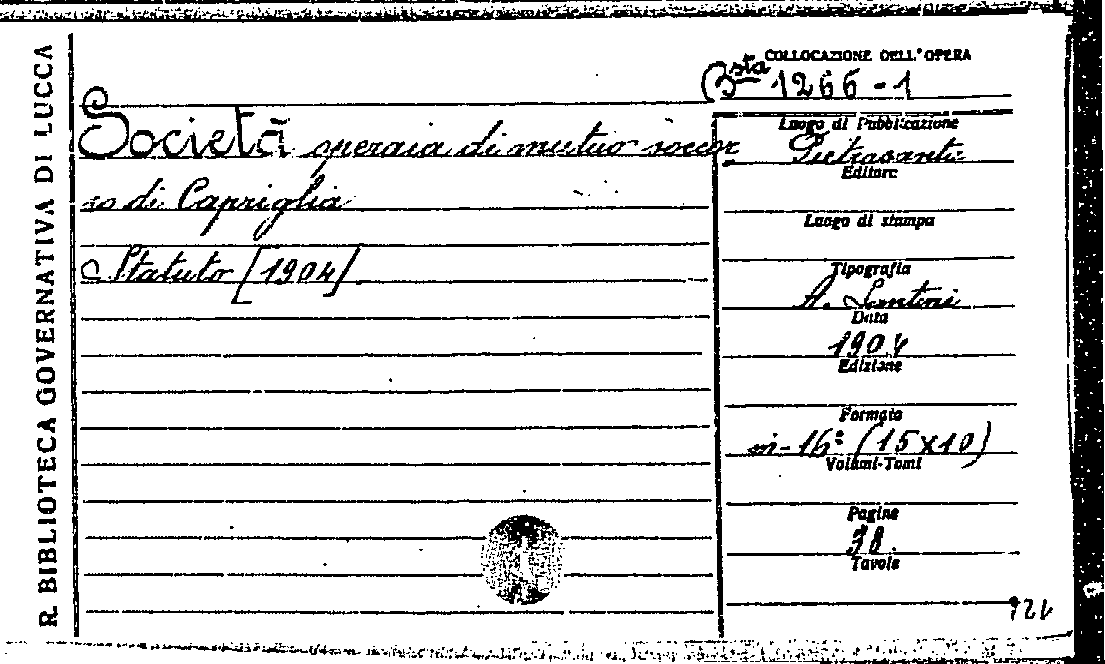 R. BIBLIOTECA GOVERNATIVA DI LUCCA
COLLOCAZIONE DELL'OPERA
Bsta 1266-1
Società operaia di mutuo soccor
so di Capriglia
Statuto [1904]
Luogo di Pubblicazione
Pietrasanta
Editore
Luogo di stampa
Tipografia
A. Santini
Data
1904
Edizione
Formato
in-16: (15x10)
Volumi-Tomi
Pagine
38
Tavole